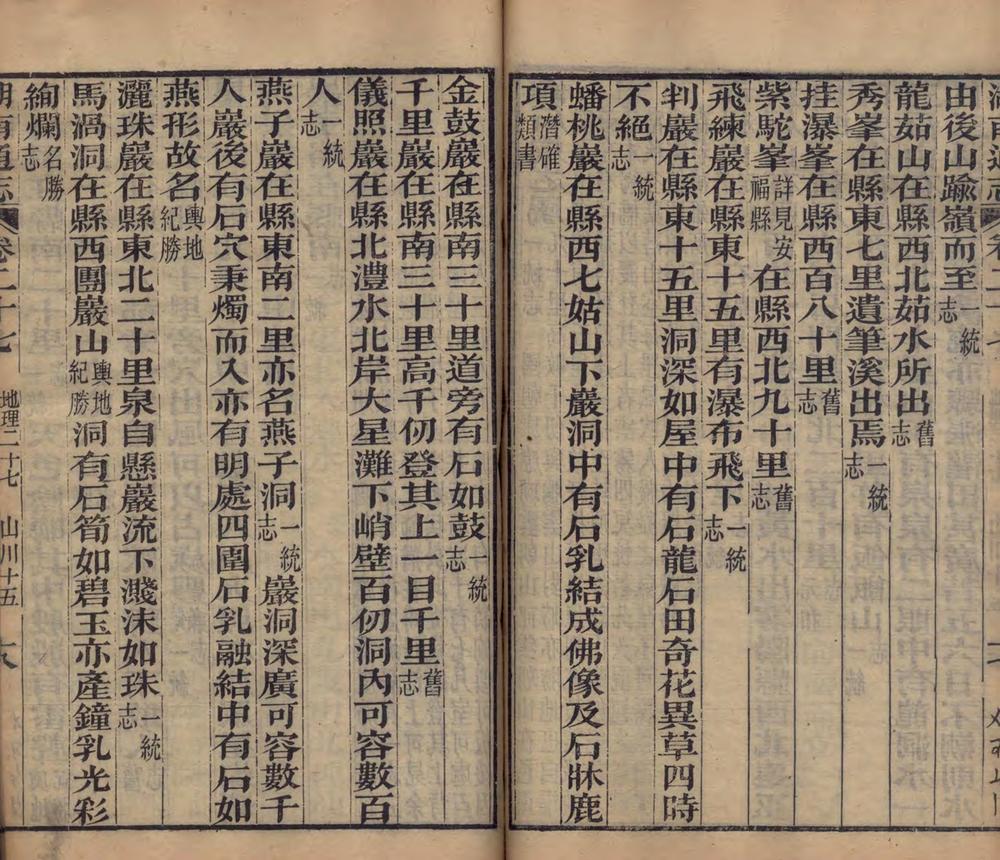 由後山踰嶺而至一統志
龍茹山在縣西北茹水所出舊志
秀峯在縣東七里遺筆溪出焉一統志
挂瀑峯在縣西百八十里舊志
紫駝峯詳見安福縣在縣西北九十里舊志
飛練巖在縣東十五里有瀑布飛下一統志
判巖在縣東十五里洞深如屋中有石龍石田奇花異草四時
不絕一統志
蟠桃巖在縣西七姑山下巖洞中有石乳結成佛像及石牀鹿
項潛確類書
金鼓巖在縣南三十里道旁有石如鼓一統志
千里巖在縣南三十里高千仞登其上一目千里舊志
儀照巖在縣北澧水北岸大星灘下峭壁百仞洞內可容數百
人一統志
燕子巖在縣東南二里亦名燕子洞一統志巖洞深廣可容數千
人巖後有石穴秉燭而入亦有明處四圍石乳融結中有石如
燕形故名輿地紀勝
灑珠巖在縣東北二十里泉自懸巖流下濺沫如珠一統志
馬渦洞在縣西團巖山輿地紀勝洞有石筍如碧玉亦產鐘乳光彩
絢爛名勝志
湖南通志 卷二十七 地理二十七 山川十五